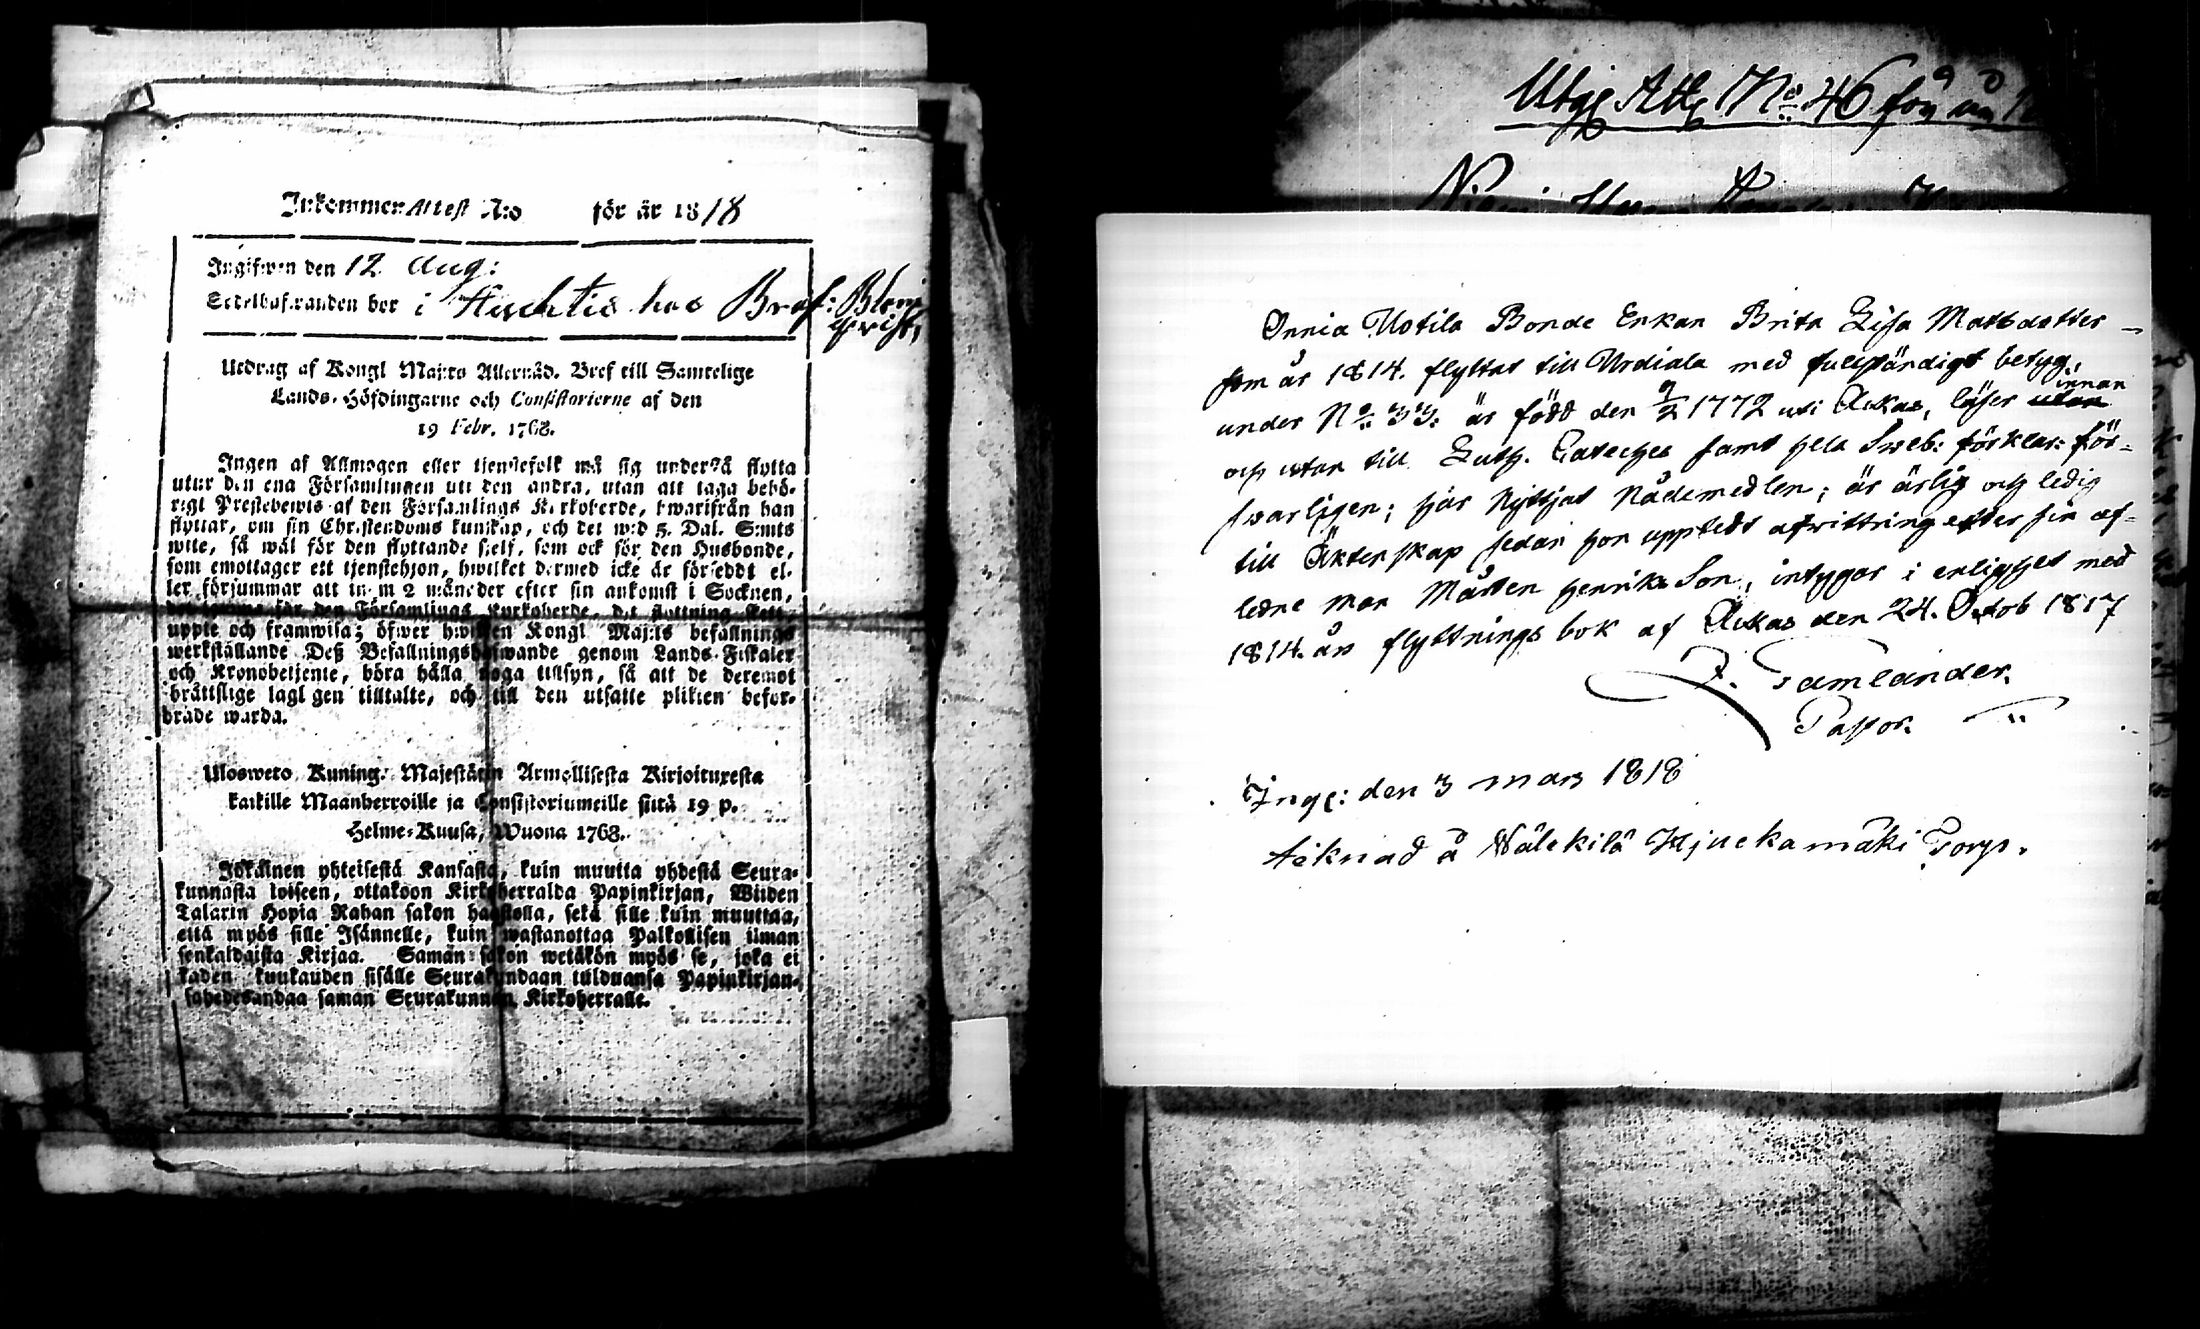 Inkommen Attest N:o för år 1818
Ingifwen den 12 Aug:
Sedelhafwanden bor i Huchtis hos Bruf: Blom
qwist,
Utdrag af Kongl Maj:ts Allernåd. Bref till Samtelige
Lands-Höfdingarne och Consistorierne af den
19 Febr. 1768.
Ingen af Allmogen eller tjenstefolk må sig understå flytta
utur den ena Församlingen uti den andra, utan att taga behö-
rigt Prestebewis af den Församlings Kyrkoherde, hwarifrån han
flyttar, om sin Christendoms kunskap, och det wid 5. Dal. S:mts
wite, så wäl för den flyttande sielf, som ock för den Husbonde,
som emottager ett tjenstehjon, hwilket dermed icke är förseddt el-
ler försummar att inom 2 månader efter sin ankomst i Socknen,
för den Församlings Kyrkoherde, dit flyttning skett,
uppte och framwisa; öfwer hwilken Kongl Maj:ts befallnings
werkställande Deß Befallningshafwande genom Lands-Fiskaler
och Kronobetjente, böra hålla noga tillsyn, så att de deremot
bråttslige lagligen tilltalte, och till den utsatte plikten befor-
drade warda.
Uloswetо Kuning. Majestätin Armollisesta Kirjoituxesta
kaikille Maanherroille ja Consistoriumeille siitä 19 p.
Helme-Kuusa, Wuona 1768.
Jokainen yhteisestä Kansasta, kuin muutta yhdestä Seura-
kunnasta toiseen, ottakoon Kirkoherralda Papinkirjan, Wiiden
Talarin Hopia Rahan sakon haastolla, sekä sille kuin muuttaa,
että myös sille Isännelle, kuin wastanottaa Palkollisen ilman
senkaldaista Kirjaa. Samän sakon wetäkön myös se, joka ei
kaden kuukauden sisälle Seurakundaan tulduansa Papinkirjan-
sa saman Seurakunnan Kirkoherralle.
Utgf Att No 46 för år
Onnia Uotila Bonde Enkan Brita Lisa Matsdotter
som år 1814. flyttat till Urdiala med fullständigt betyg,
under No 33: är född den 9/2 1772 uti Ackas, läser utan innan
och utan till Luth. Cateches samt hela Sweb: förklar: för-
swarligen; har nyttjat Nådemedlen; är ärlig och ledig
till Äktenskap sedan hon uppledt afwittring efter sin af-
ledne man Mårten Henriks Son, intygar i enlighet med
1814. års flyttnings bok af Ackas den 24. Octob 1817
J. Tamlander.
Pastor.
Inge: den 3 mars 1818
teknad å Wälekilä Kjuckamäki Torp.